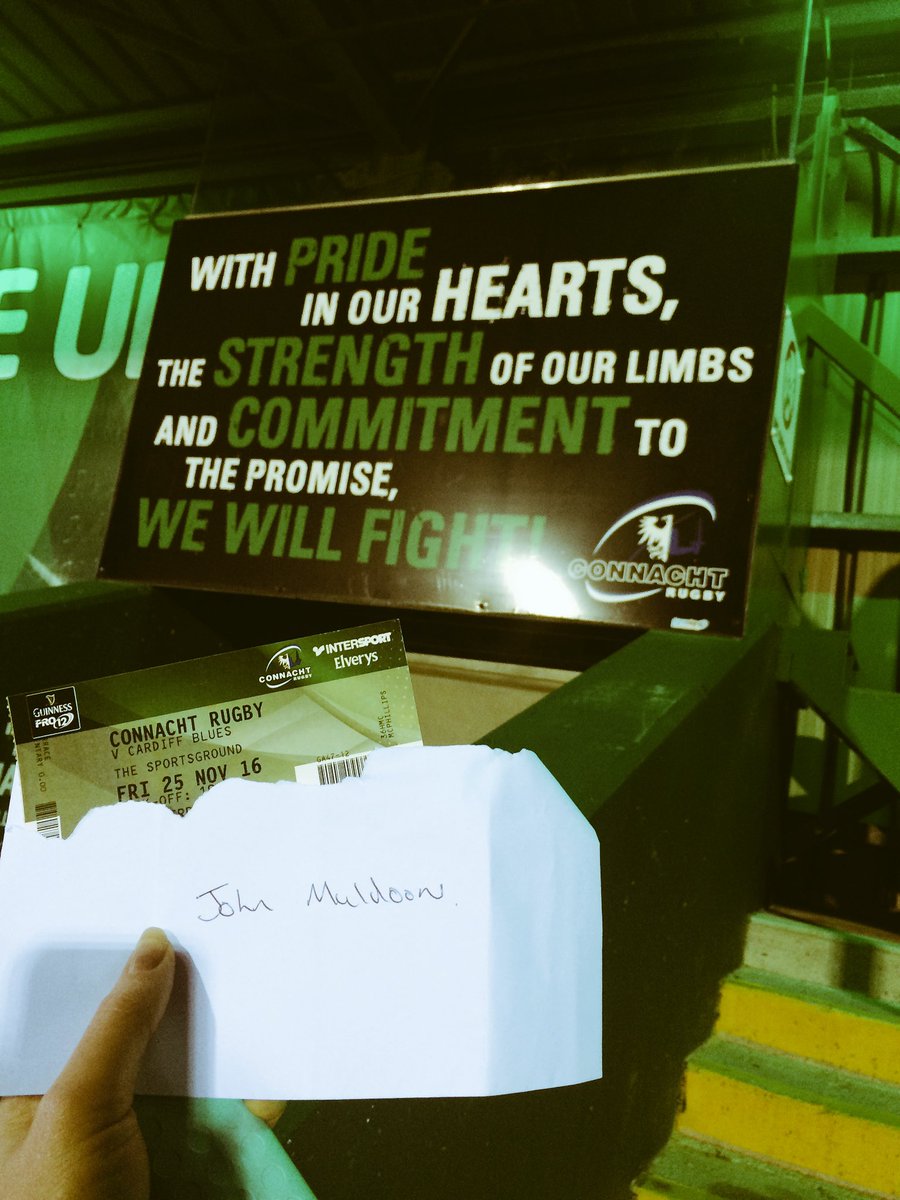 E UN
WITH PRIDE
IN OUR HEARTS,
THE STRENGTH OF OUR LIMBS
AND COMMITMENT TO
THE PROMISE,
WE WILL FIGHT!
CONNACHT
RUGBY
INTERSPORT
Elverys
CONNACHT
RUGBY
GUINNESS
PRO12
CONNACHT RUGBY
V CARDIFF BLUES
THE SPORTSGROUND
FRI 25 NOV 16
MCPHILLIPS
John Muldoon.